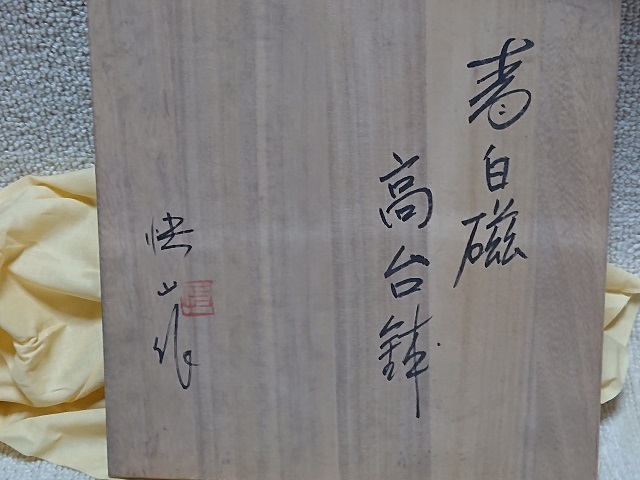 青白磁
高台鉢
快山作